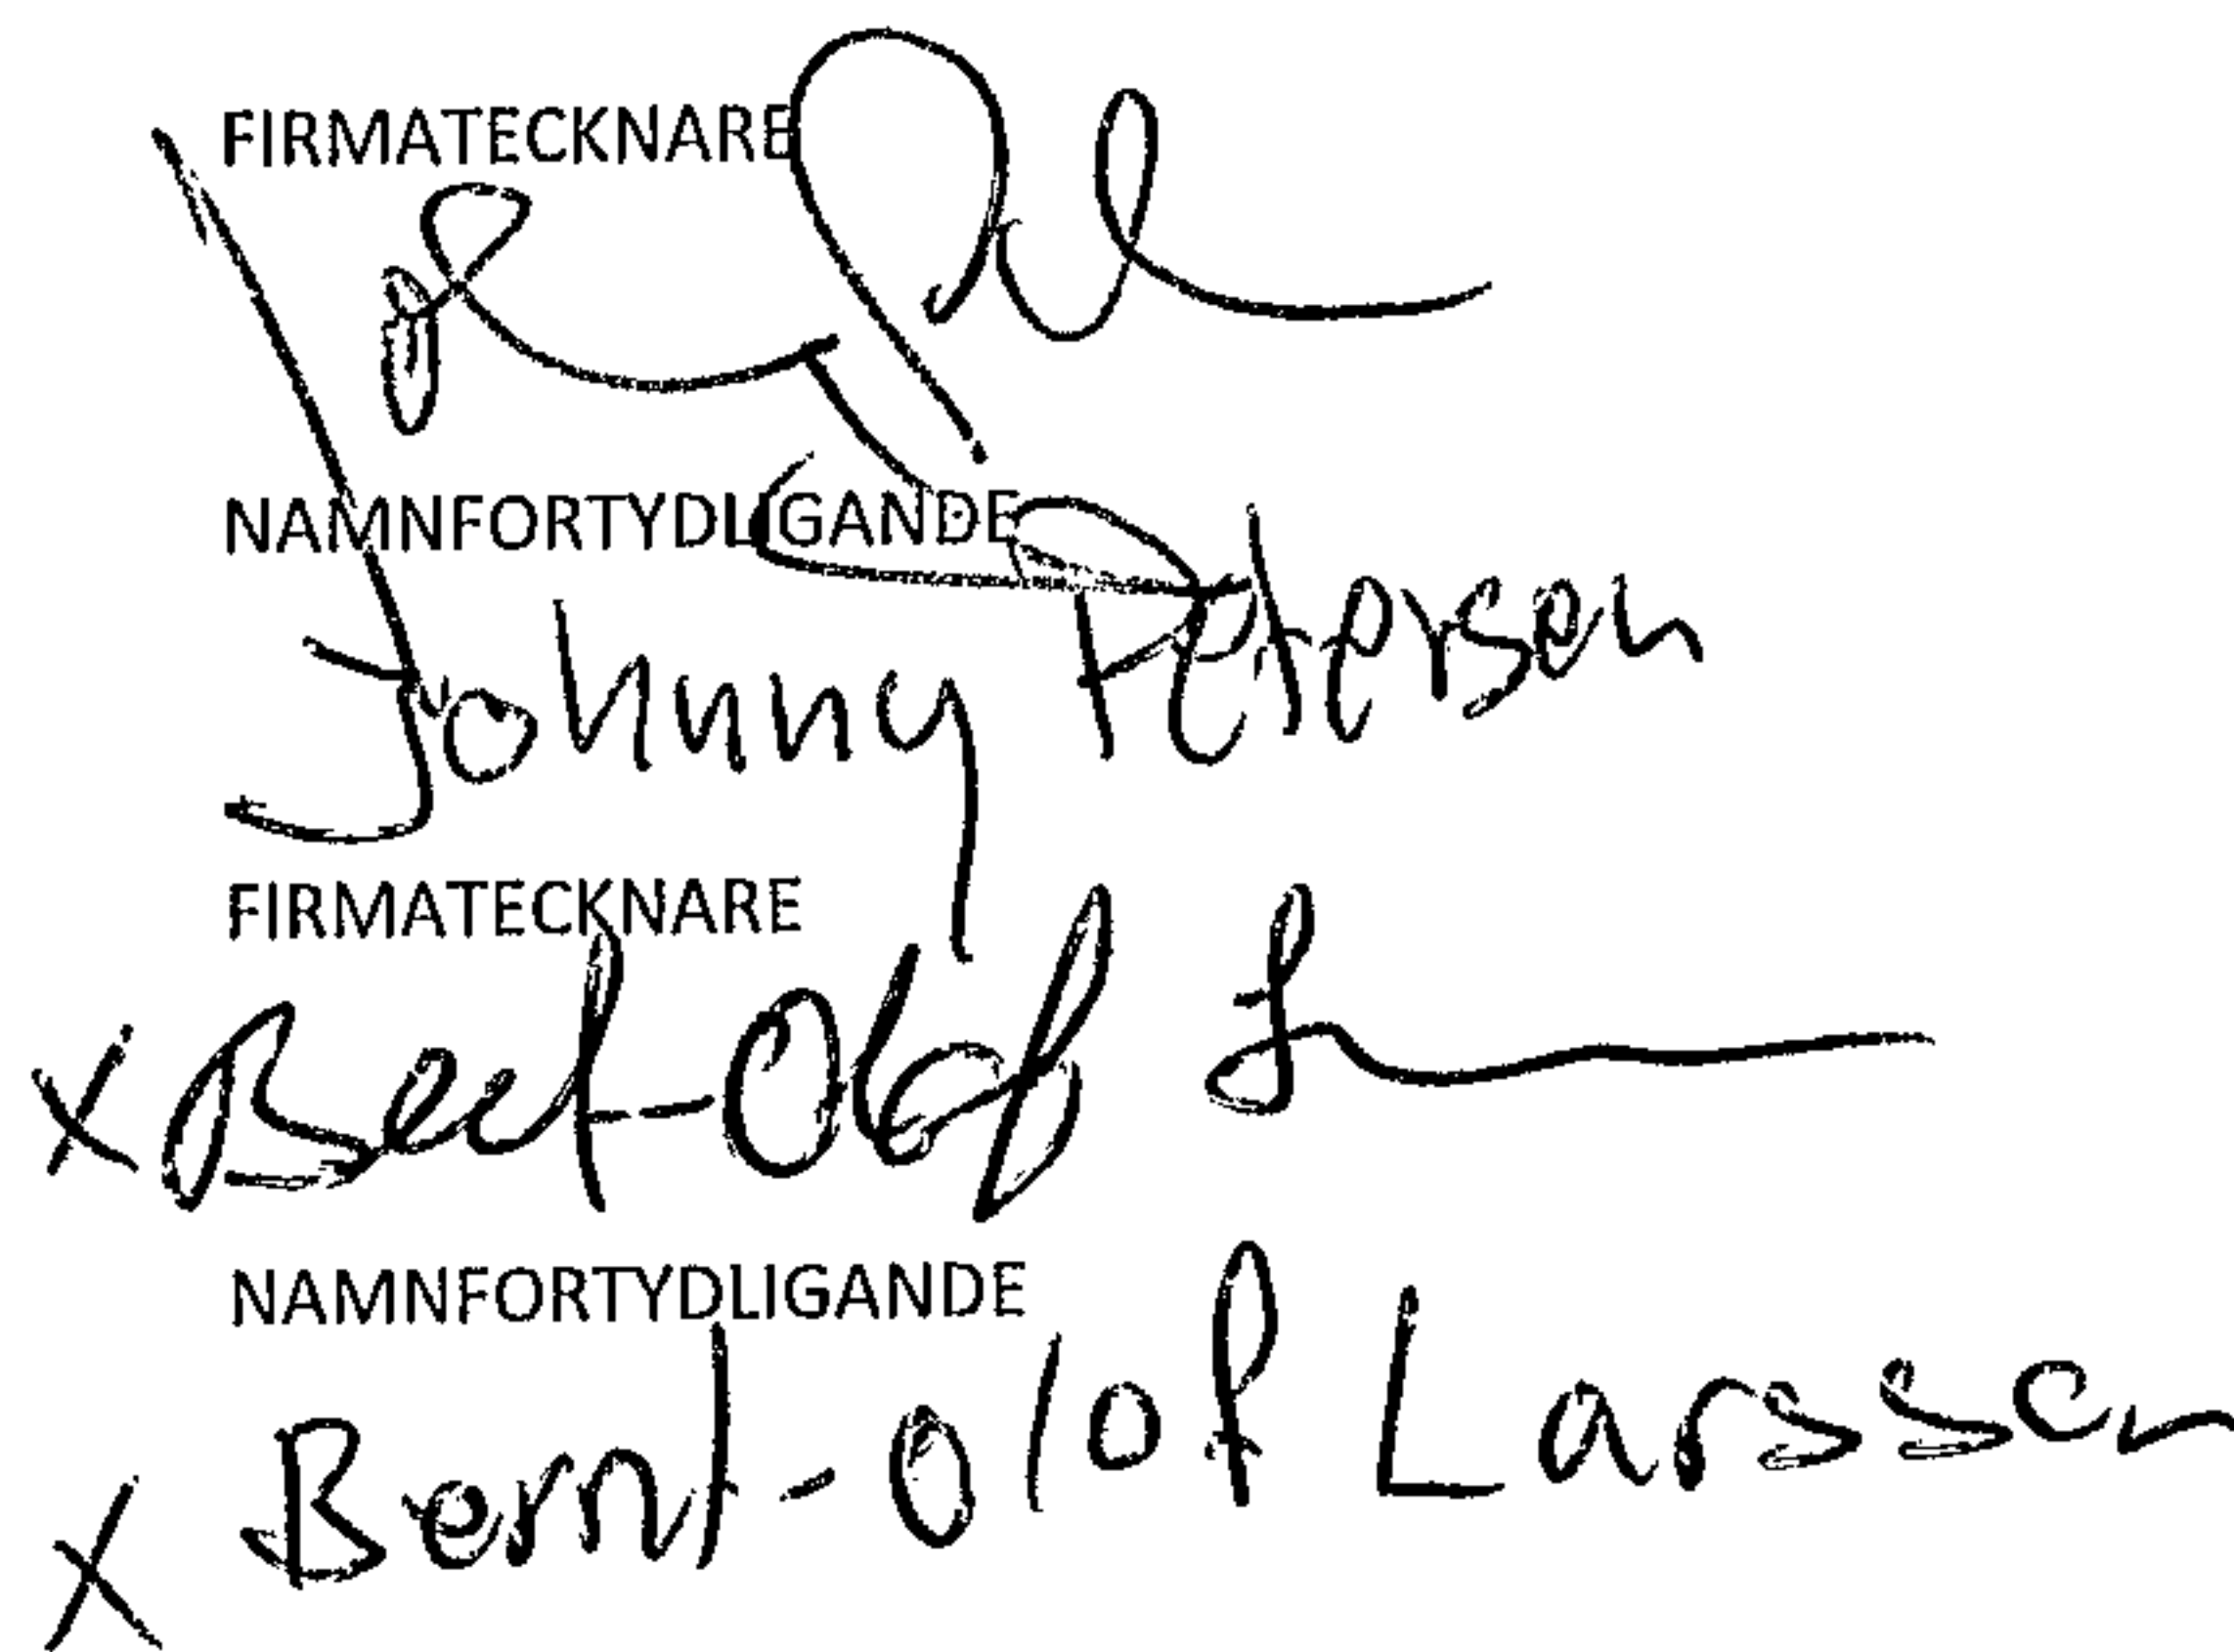 FIRMATECKNARE
NAMNFORTYDLIGANDE
Johnny Petersen
FIRMATECKNARE
X Bernt-Olof
NAMNFORTYDLIGANDE
X Bernt-Olof Larsson